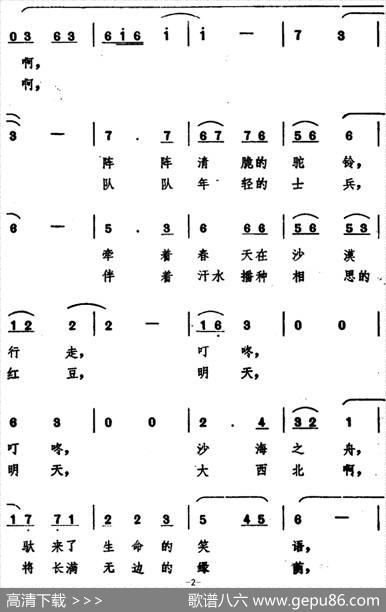 0 3 6 3 | 6 i 6 i | i — | 7 3 |
啊，
啊，
3 — | 7 . 7 | 6 7 7 6 | 5 6 6 |
阵 阵 清 脆的 驼 铃，
队 队 年 轻的 士 兵，
6 — | 5 . 3 | 6 6 6 | 5 6 5 3 |
牵 着 春 天在 沙 漠
伴 着 汗水 播种 相 思的
1 2 2 | 2 — | 1 6 3 | 0 0 |
行 走， 叮 咚，
红 豆， 明 天，
6 3 | 0 0 | 2 . 4 | 3 2 1 |
叮 咚， 沙 海 之 舟，
明 天， 大 西 北 啊，
1 7 7 1 | 2 . 3 | 5 4 5 | 6 — |
驮 来了 生 命 的 笑 语，
将 长满 无 边 的 绿
-2-
高清下载 >>>
歌谱八六 www.gepu86.com